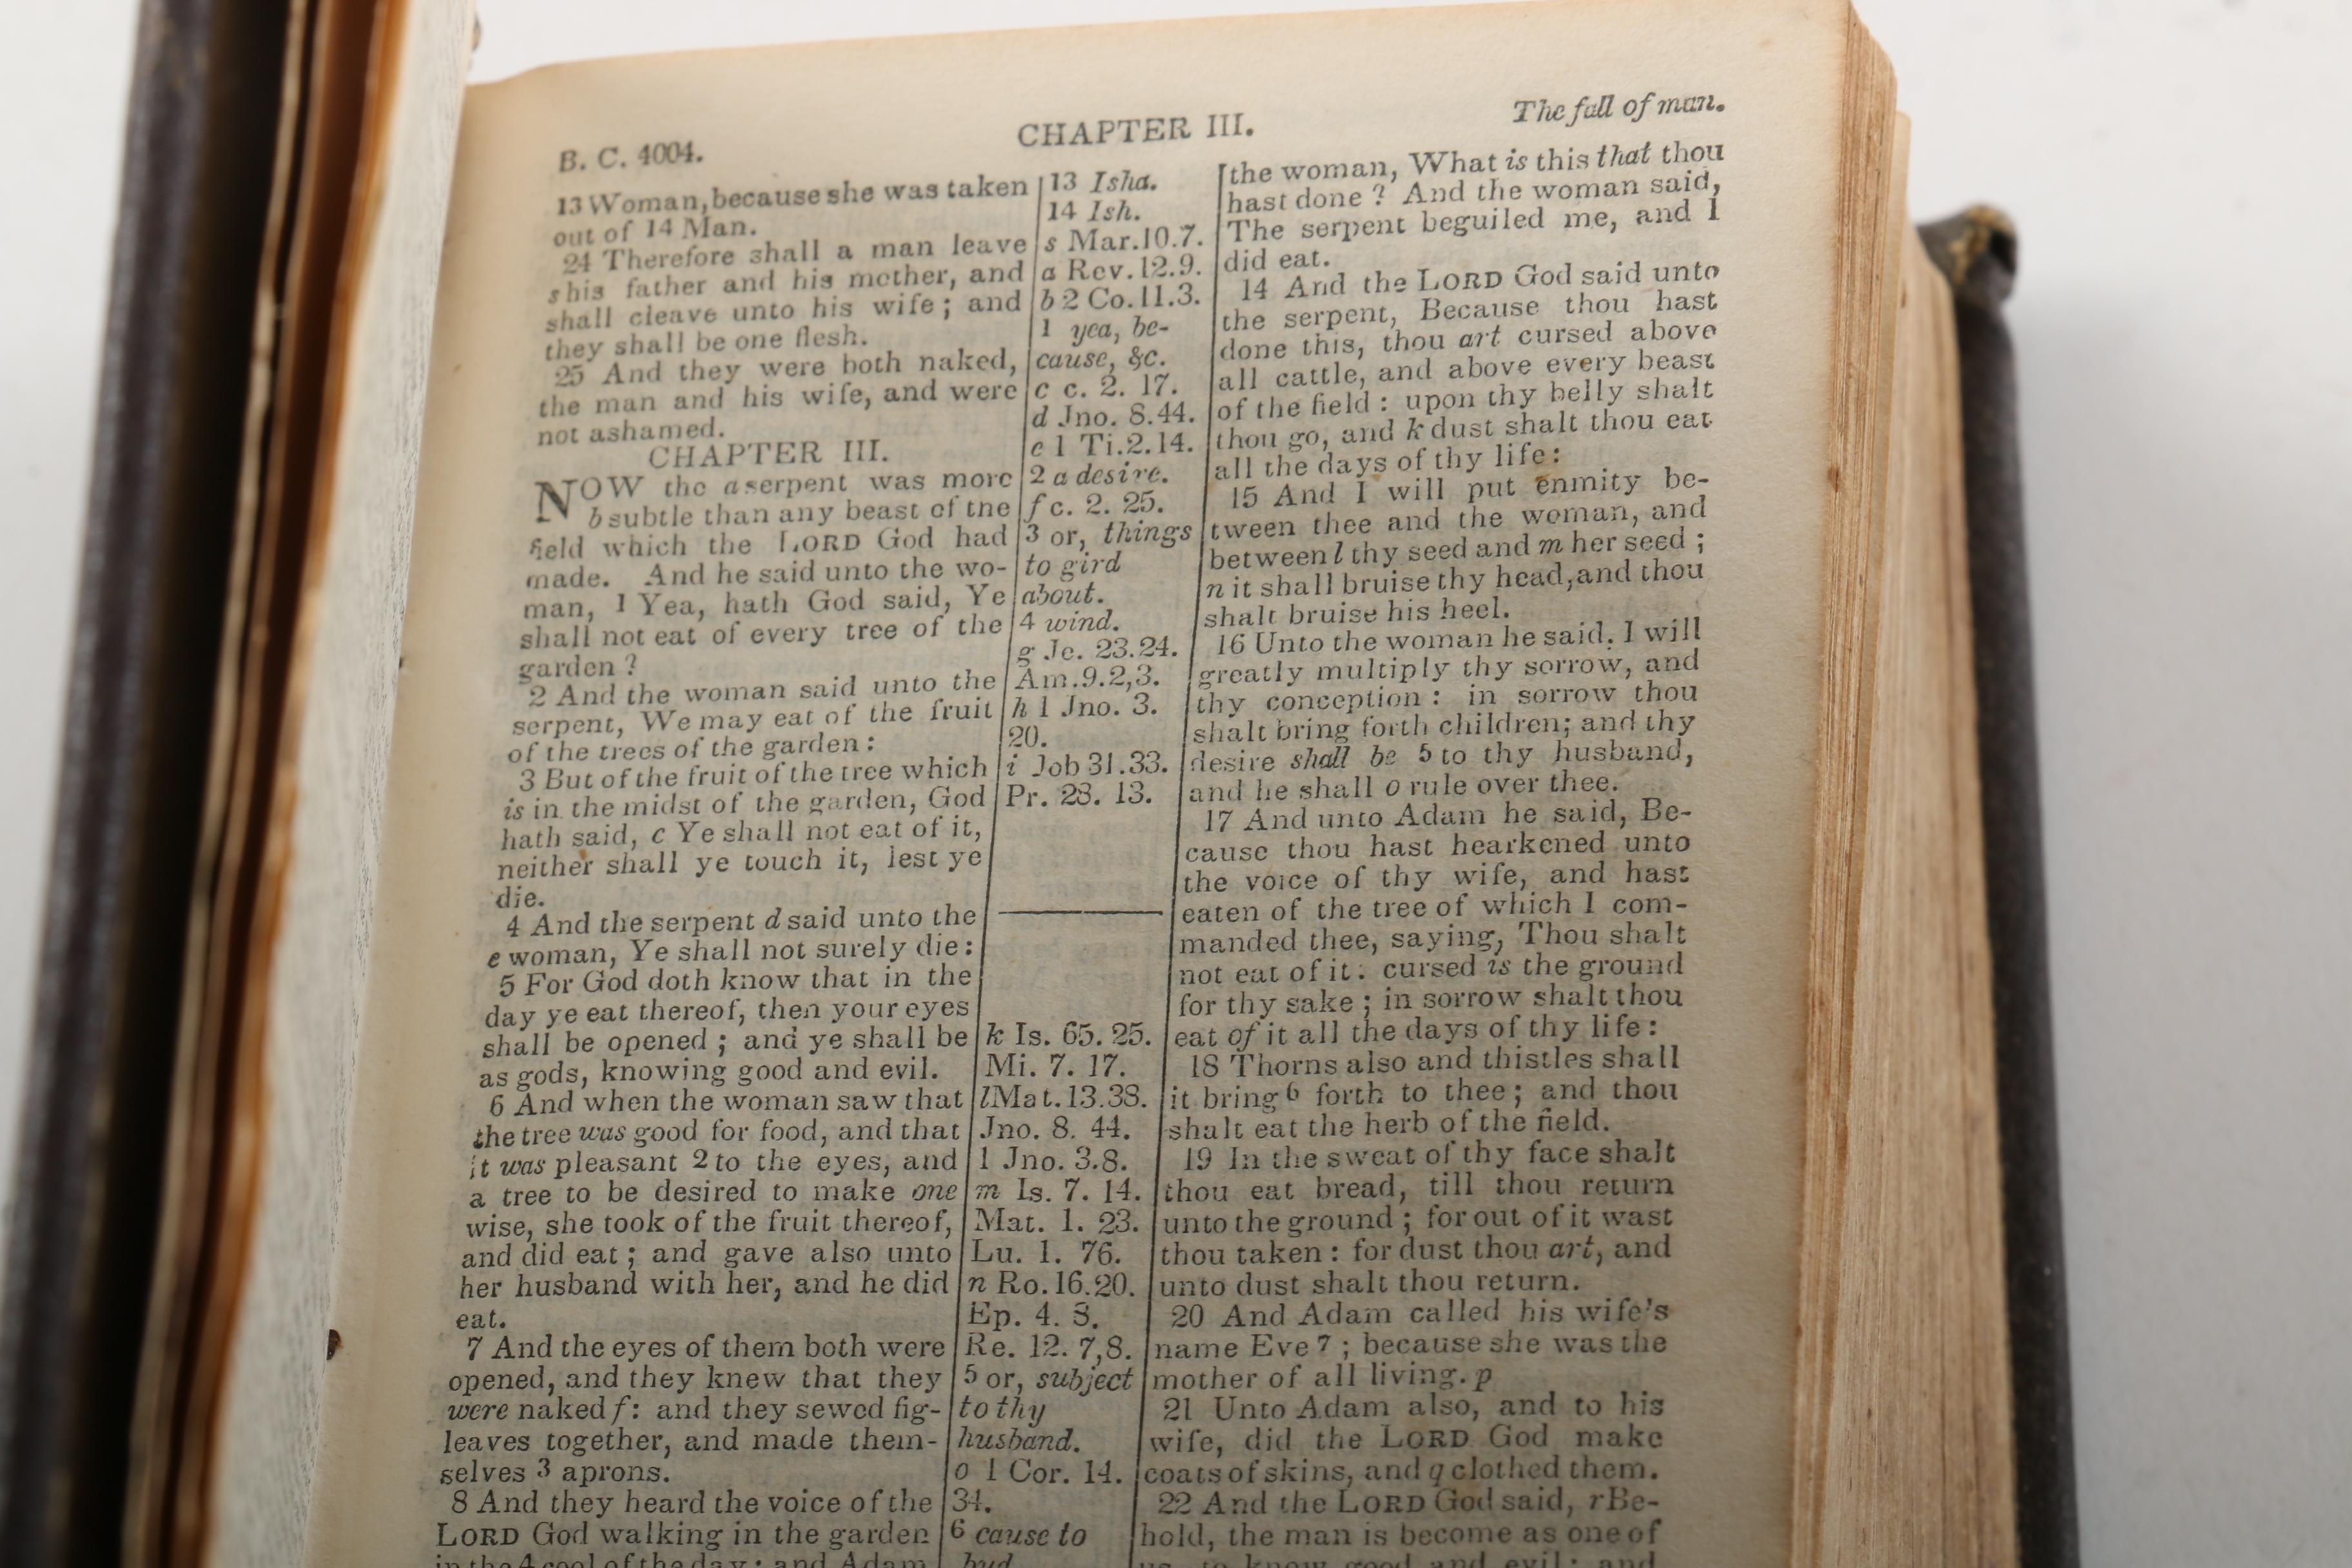 B. C. 4004.
CHAPTER III.
The fall of man.
13 Woman, because she was taken
out of 14 Man.
24 Therefore shall a man leave
s his father and his mother, and
shall cleave unto his wife; and
they shall be one flesh.
25 And they were both naked,
the man and his wife, and were
not ashamed.
CHAPTER III.
NOW the a serpent was more
b subtle than any beast of the
field which the LORD God had
made. And he said unto the wo-
man, 1 Yea, hath God said, Ye
shall not eat of every tree of the
garden?
2 And the woman said unto the
serpent, We may eat of the fruit
of the trees of the garden:
3 But of the fruit of the tree which
is in the midst of the garden, God
hath said, c Ye shall not eat of it,
neither shall ye touch it, lest ye
die.
4 And the serpent d said unto the
e woman, Ye shall not surely die:
5 For God doth know that in the
day ye eat thereof, then your eyes
shall be opened; and ye shall be
as gods, knowing good and evil.
6 And when the woman saw that
the tree was good for food, and that
it was pleasant 2 to the eyes, and
a tree to be desired to make one
wise, she took of the fruit thereof,
and did eat; and gave also unto
her husband with her, and he did
eat.
7 And the eyes of them both were
opened, and they knew that they
were naked f: and they sewed fig-
leaves together, and made them-
selves 3 aprons.
8 And they heard the voice of the
LORD God walking in the garden
in the 4 cool of the day: and Adam
13 Isha.
14 Ish.
s Mar. 10. 7.
a Rev. 12. 9.
b 2 Co. 11. 3.
1 yea, be-
cause, &c.
c c. 2. 17.
d Jno. 8. 44.
e 1 Ti. 2. 14.
2 a desire.
f c. 2. 25.
3 or, things
to gird
about.
4 wind.
g Je. 23. 24.
Am. 9. 2,3.
h 1 Jno. 3.
20.
i Job 31. 33.
Pr. 28. 13.
k Is. 65. 25.
Mi. 7. 17.
l Mat. 13. 38.
Jno. 8. 44.
1 Jno. 3. 8.
m Is. 7. 14.
Mat. 1. 23.
Lu. 1. 76.
n Ro. 16. 20.
Ep. 4. 8.
Re. 12. 7,8.
5 or, subject
to thy
husband.
o 1 Cor. 14.
34.
6 cause to
bud.
[the woman, What is this that thou
hast done? And the woman said,
The serpent beguiled me, and I
did eat.
14 And the LORD God said unto
the serpent, Because thou hast
done this, thou art cursed above
all cattle, and above every beast
of the field: upon thy belly shalt
thou go, and k dust shalt thou eat
all the days of thy life:
15 And I will put enmity be-
tween thee and the woman, and
between l thy seed and m her seed;
n it shall bruise thy head, and thou
shalt bruise his heel.
16 Unto the woman he said. I will
greatly multiply thy sorrow, and
thy conception: in sorrow thou
shalt bring forth children; and thy
desire shall be 5 to thy husband,
and he shall o rule over thee.
17 And unto Adam he said, Be-
cause thou hast hearkened unto
the voice of thy wife, and hast
eaten of the tree of which I com-
manded thee, saying, Thou shalt
not eat of it: cursed is the ground
for thy sake; in sorrow shalt thou
eat of it all the days of thy life:
18 Thorns also and thistles shall
it bring 6 forth to thee; and thou
shalt eat the herb of the field.
19 In the sweat of thy face shalt
thou eat bread, till thou return
unto the ground; for out of it wast
thou taken: for dust thou art, and
unto dust shalt thou return.
20 And Adam called his wife's
name Eve 7; because she was the
mother of all living. p
21 Unto Adam also, and to his
wife, did the LORD God make
coats of skins, and q clothed them.
22 And the LORD God said, r Be-
hold, the man is become as one of
us, to know good and evil: and